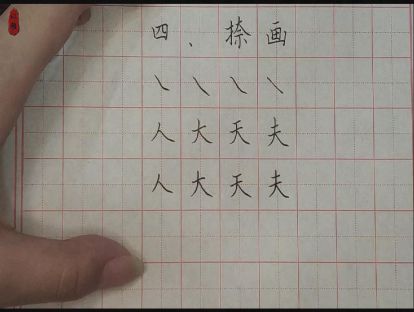 四、捺画
㇏ ㇏ ㇏ ㇏
人 大 天 夫
人 大 天 夫